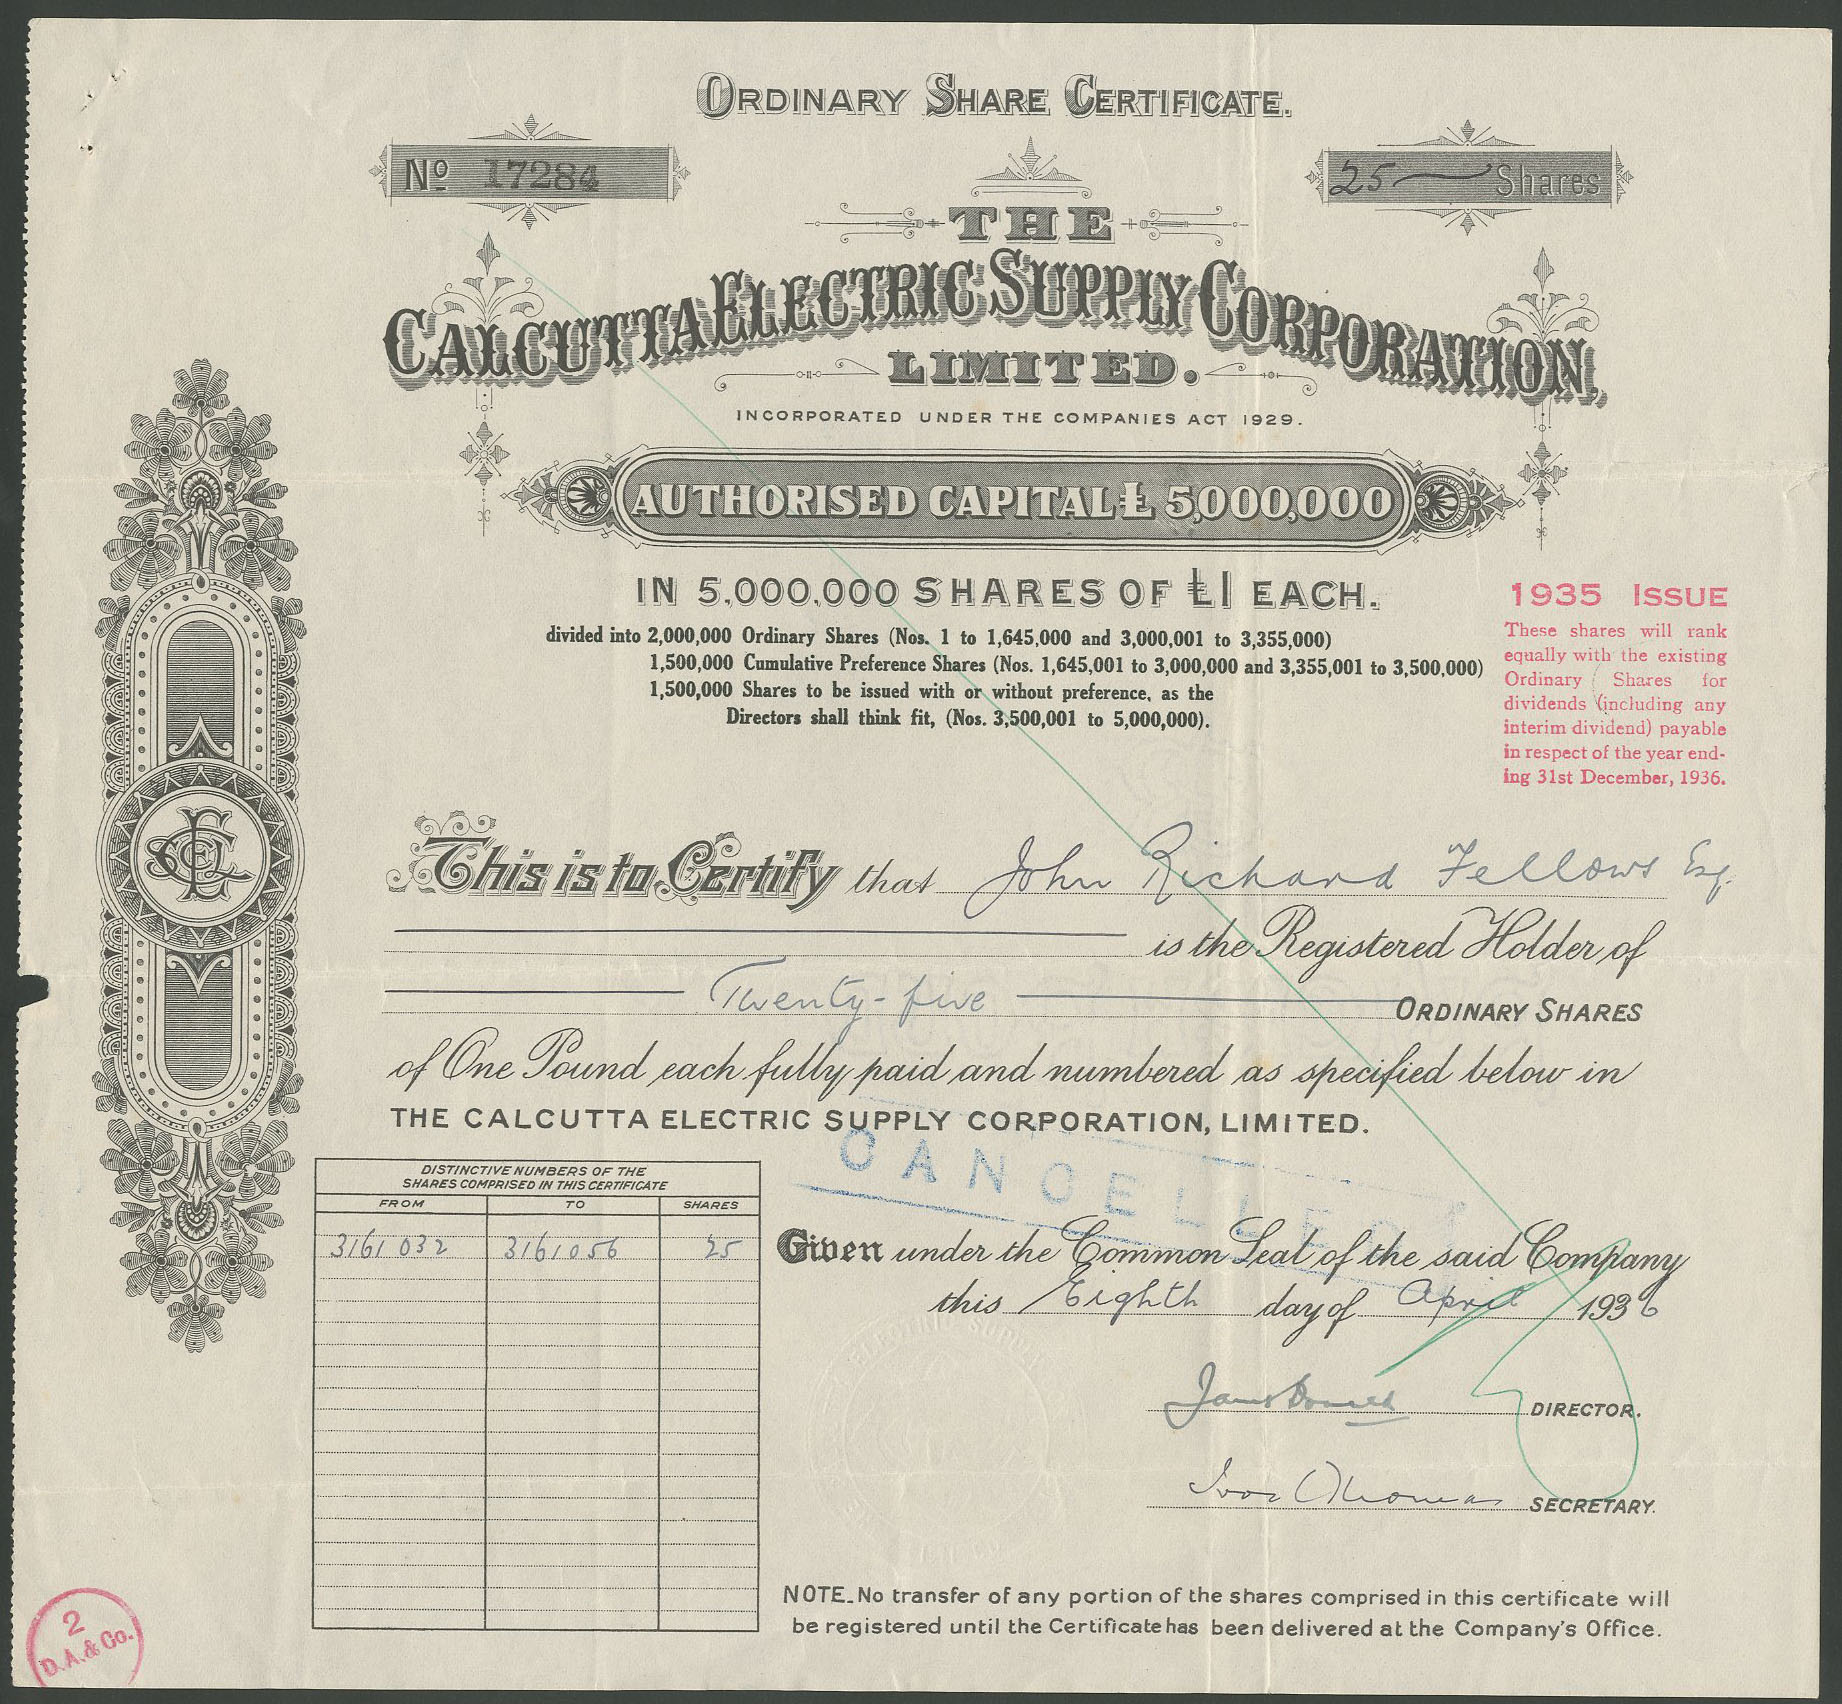 ORDINARY SHARE CERTIFICATE.
No 17284
25 Shares
THE
CALCUTTA ELECTRIC SUPPLY CORPORATION,
LIMITED.
INCORPORATED UNDER THE COMPANIES ACT 1929.
AUTHORISED CAPITAL £ 5,000,000
IN 5,000,000 SHARES OF £1 EACH.
divided into 2,000,000 Ordinary Shares (Nos. 1 to 1,645,000 and 3,000,001 to 3,355,000)
1,500,000 Cumulative Preference Shares (Nos. 1,645,001 to 3,000,000 and 3,355,001 to 3,500,000)
1,500,000 Shares to be issued with or without preference, as the
Directors shall think fit, (Nos. 3,500,001 to 5,000,000).
1935 ISSUE
These shares will rank
equally with the existing
Ordinary Shares for
dividends (including any
interim dividend) payable
in respect of the year end-
ing 31st December, 1936.
This is to Certify that John Richard Fellows Esq.
is the Registered Holder of
Twenty-five ORDINARY SHARES
of One Pound each fully paid and numbered as specified below in
THE CALCUTTA ELECTRIC SUPPLY CORPORATION, LIMITED.
CANCELLED
DISTINCTIVE NUMBERS OF THE
SHARES COMPRISED IN THIS CERTIFICATE
FROM TO SHARES
3161032 3161056 25
Given under the Common Seal of the said Company
this Eighth day of April 1936
DIRECTOR.
Ivor Thomas SECRETARY.
NOTE. No transfer of any portion of the shares comprised in this certificate will
be registered until the Certificate has been delivered at the Company's Office.
2
D.A. & Co.